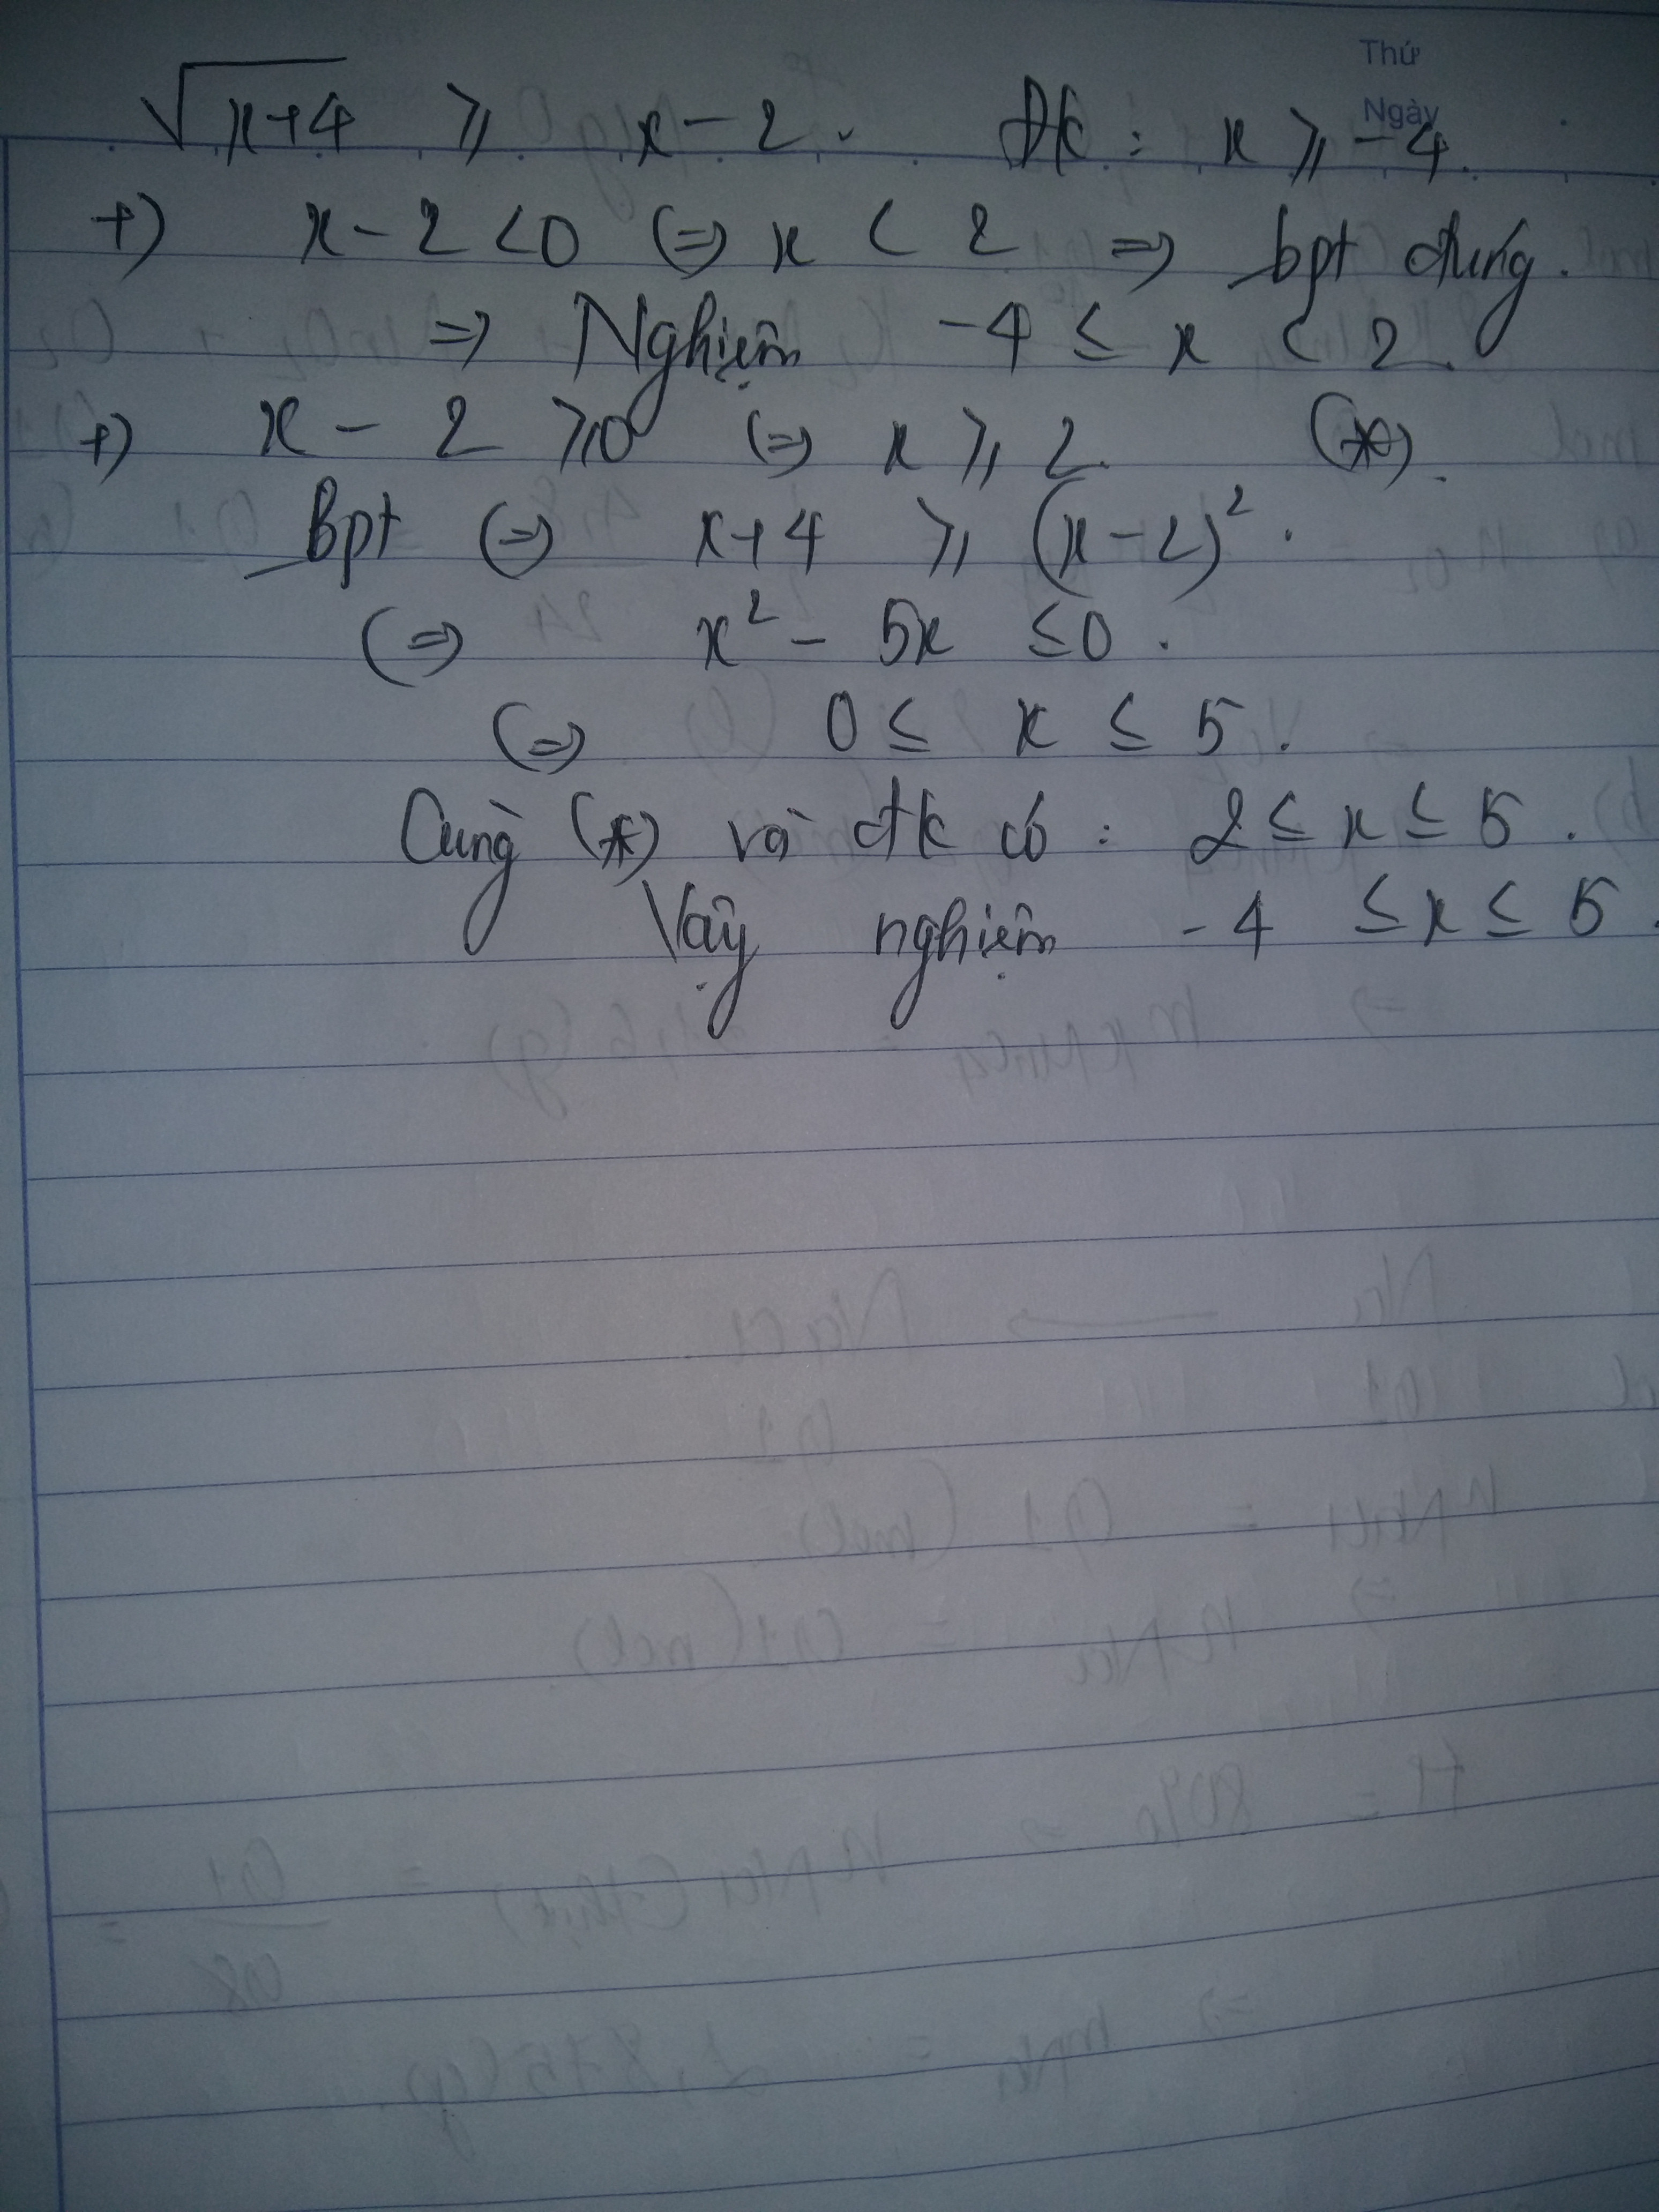 Thứ
Ngày
√(x+4) ≥ x - 2. Đk: x ≥ -4.
+) x - 2 < 0 (=) x < 2 => bpt đúng.
=> Nghiệm -4 ≤ x < 2.
+) x - 2 ≥ 0 (=) x ≥ 2. (*).
Bpt (=) x+4 ≥ (x-2)².
(=) x² - 5x ≤ 0.
(=) 0 ≤ x ≤ 5.
Cùng (*) và đk có: 2 ≤ x ≤ 5.
Vậy nghiệm -4 ≤ x ≤ 5.